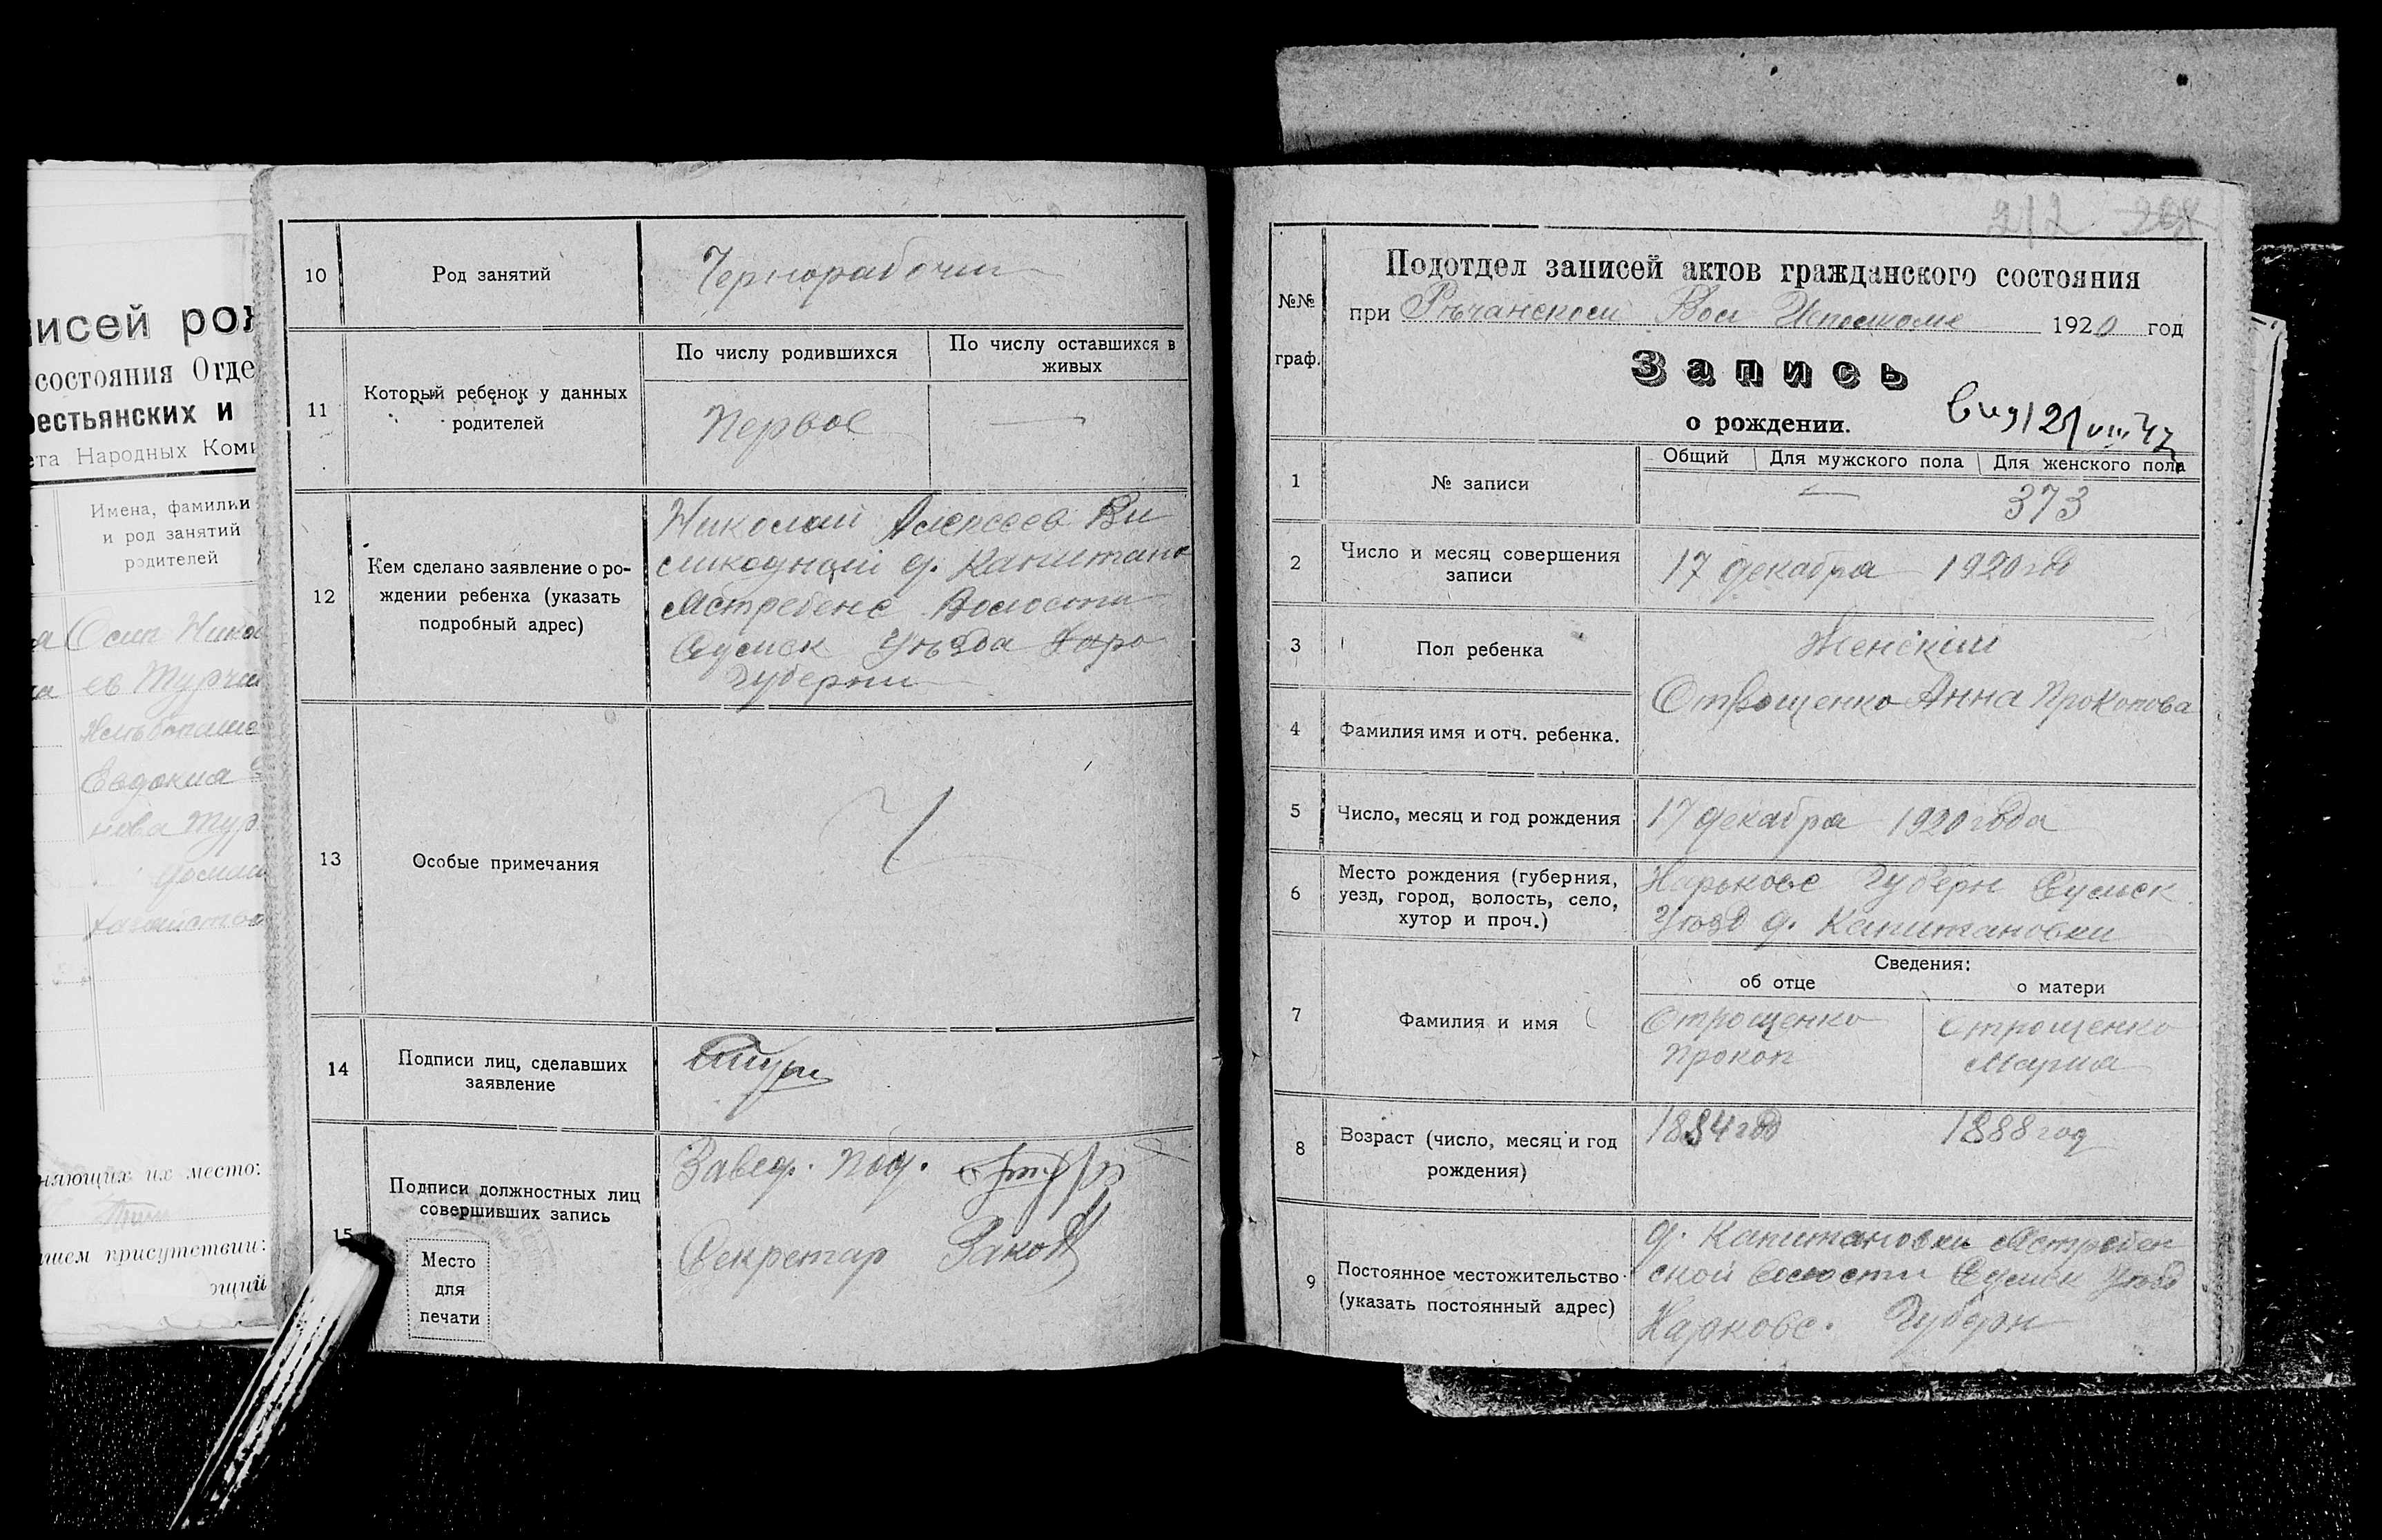 исей рож
состояния Отде
рестьянских и
ета Народных Коми
Имена, фамилии
и род занятий
родителей
Осип Никол
ев Турчи
Евдокия
нова Тур
няющих их место:
шем присутствии:
ощий
10
Род занятий
Чернорабочи
11
Который ребенок у данных
родителей
По числу родившихся
По числу оставшихся в
живых
Первое
—
12
Кем сделано заявление о ро-
ждении ребенка (указать
подробный адрес)
Николай Алексеев Ви
д. Капитано
Ястребенс Волости
Сумск Уъзда Харо
Губерни
13
Особые примечания
14
Подписи лиц, сделавших
заявление
15
Подписи должностных лиц
совершивших запись
Место
для
печати
Завед. Под.
Секретар
212 208
№№
граф.
Подотдел записей актов гражданского состояния
при Ръчанском Вол Исполкоме 1920 год
Запись
о рождении.
1
№ записи
Общий
Для мужского пола
Для женского пола
—
373
2
Число и месяц совершения
записи
17 декабря 1920 год
3
Пол ребенка
Женский
4
Фамилия имя и отч. ребенка.
Отрощенко Анна Прокопова
5
Число, месяц и год рождения
17 декабря 1920 года
6
Место рождения (губерния,
уезд, город, волость, село,
хутор и проч.)
Харьковс Губерн Сумск
Уъзд д. Капитановки
Сведения:
об отце
о матери
7
Фамилия и имя
Отрощенко
Прокоп
Отрощенко
Мария
8
Возраст (число, месяц и год
рождения)
1884 год
1888 год
9
Постоянное местожительство
(указать постоянный адрес)
д. Капитановки Ястребен
ской волости Сумск Уъзд
Харковс. Губерн